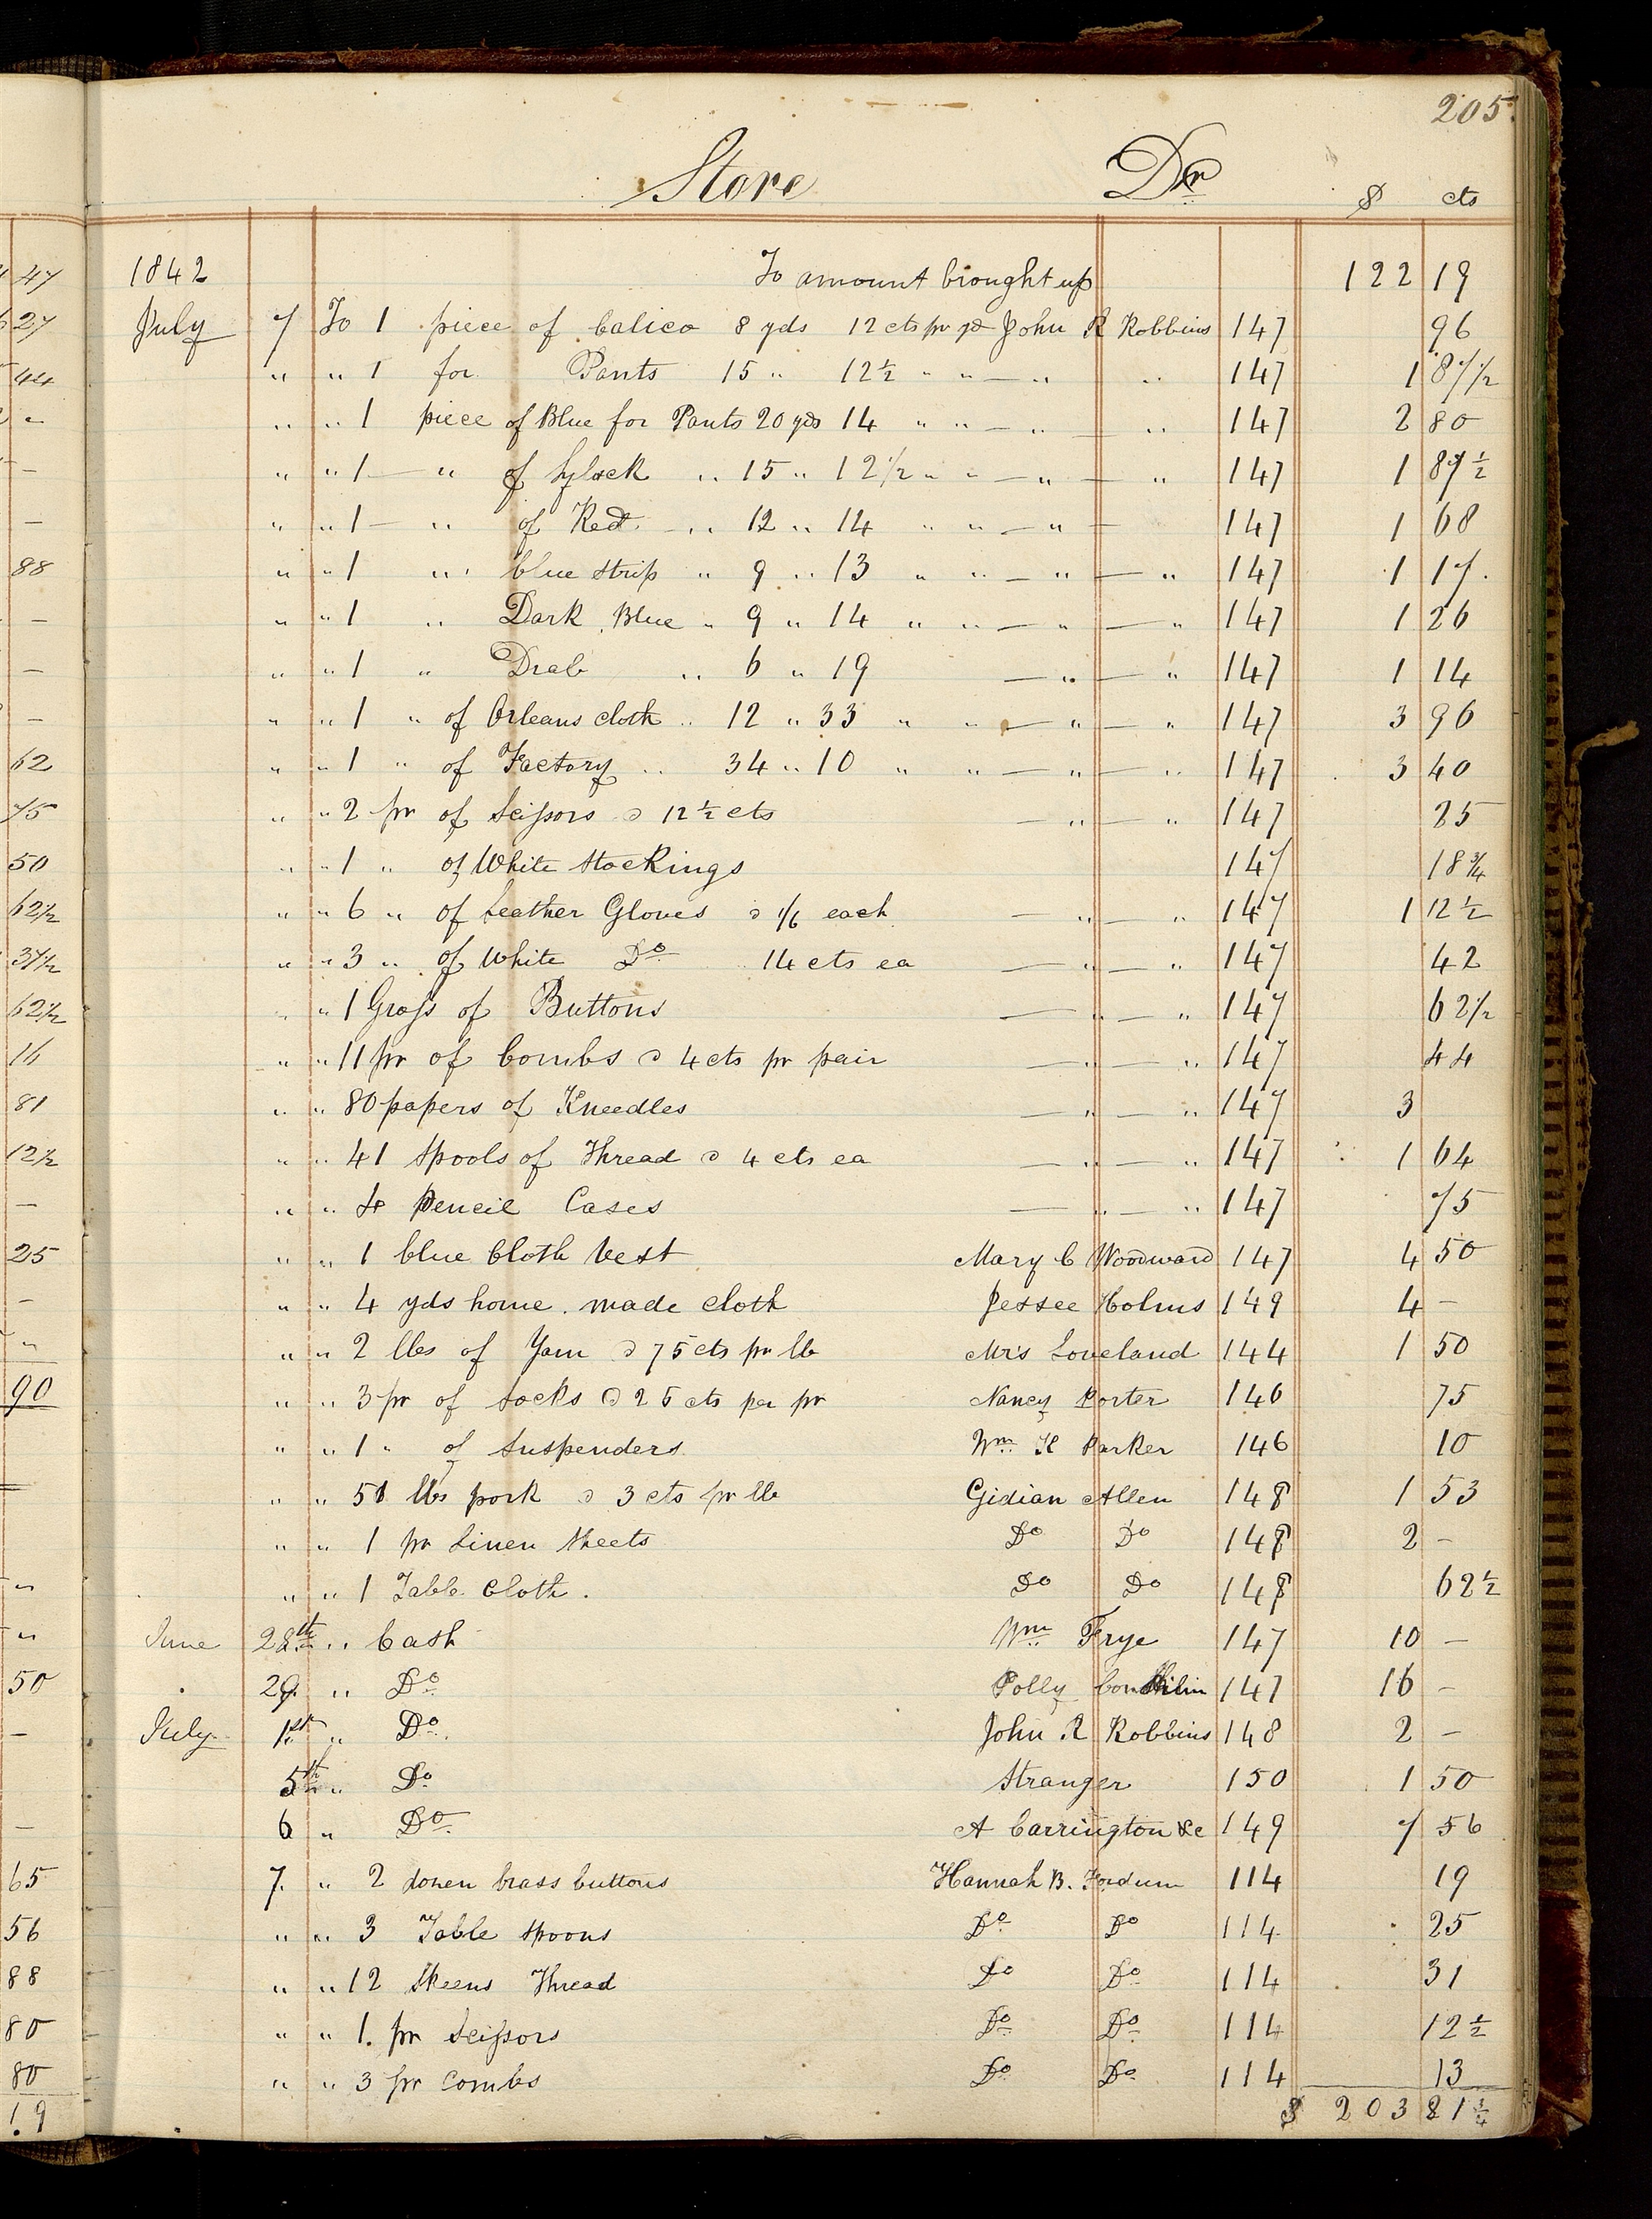 205.
Store Dr $ cts
47 1842 To amount brought up 122 19
27 July 7 To 1 piece of Calico 8 yds 12 cts pr yd John R Robbins 147 96
44 " " 1 for Pants 15 " 12½ " " — " " 147 1 87½
" " " 1 piece of Blue for Pants 20 yds 14 " " — " — " 147 2 80
— " " 1 — " of 15 " 12½ " " — " — " 147 1 87½
— " " 1 — " of Red — " 12 " 14 " " — " — 147 1 68
88 " " 1 " blue strip " 9 " 13 " " — " — " 147 1 17.
— " " 1 " Dark Blue " 9 " 14 " " — " — " 147 1 26
— " " 1 " Drab " 6 " 19 — " — " 147 1 14
— " " 1 " of Orleans cloth " 12 " 33 " " — " — " 147 3 96
62 " " 1 " of Factory " 34 " 10 " " — " — " 147 3 40
75 " " 2 pr of Scissors @ 12½ cts — " — " 147 25
50 " " 1 " of White Stockings 147 18¾
62½ " " 6 " of Leather Gloves @ 1/6 each — " — " 147 1 12½
37½ " " 3 " of White Do 14 cts ea — " — " 147 42
62½ " " 1 Gross of Buttons — " — " 147 62½
16 " " 11 pr of Combs @ 4 cts pr pair — " — " 147 44
81 " " 80 papers of Kneedles — " — " 147 3
12½ " " 41 Spools of Thread @ 4 cts ea — " — " 147 1 64
— " " 4 Pencil Cases — " — " 147 75
25 " " 1 blue Cloth Vest Mary C Woodward 147 4 50
— " " 4 yds home made cloth Jessee Holms 149 4 —
" " " 2 lbs of Yarn @ 75 cts pr lb Mrs Loveland 144 1 50
90 " " 3 pr of Socks @ 25 cts per pr Nancy Porter 146 75
" " 1 " of Suspenders Wm K Parker 146 10
" " 51 lbs pork @ 3 cts pr lb Gidian Allen 148 1 53
" " 1 pr Linen Sheets Do Do 148 2 —
" " " 1 Table Cloth. Do Do 148 62½
" June 28th " Cash Wm Frye 147 10 —
50 29. " Do Polly 147 16 —
— July 1st " Do. John R Robbins 148 2 —
5th " Do Stranger 150 1 50
— 6 " Do. A Carrington &c 149 7 56
65 7. " 2 dozen brass buttons Hannah B. Fordum 114 19
56 " " 3 Table Spoons Do Do 114 25
88 " " 12 Skeens Thread Do Do 114 31
80 " " 1. pr Scissors Do Do 114 12½
80 " " 3 pr Combs Do Do 114 13
19 $ 203 81¾